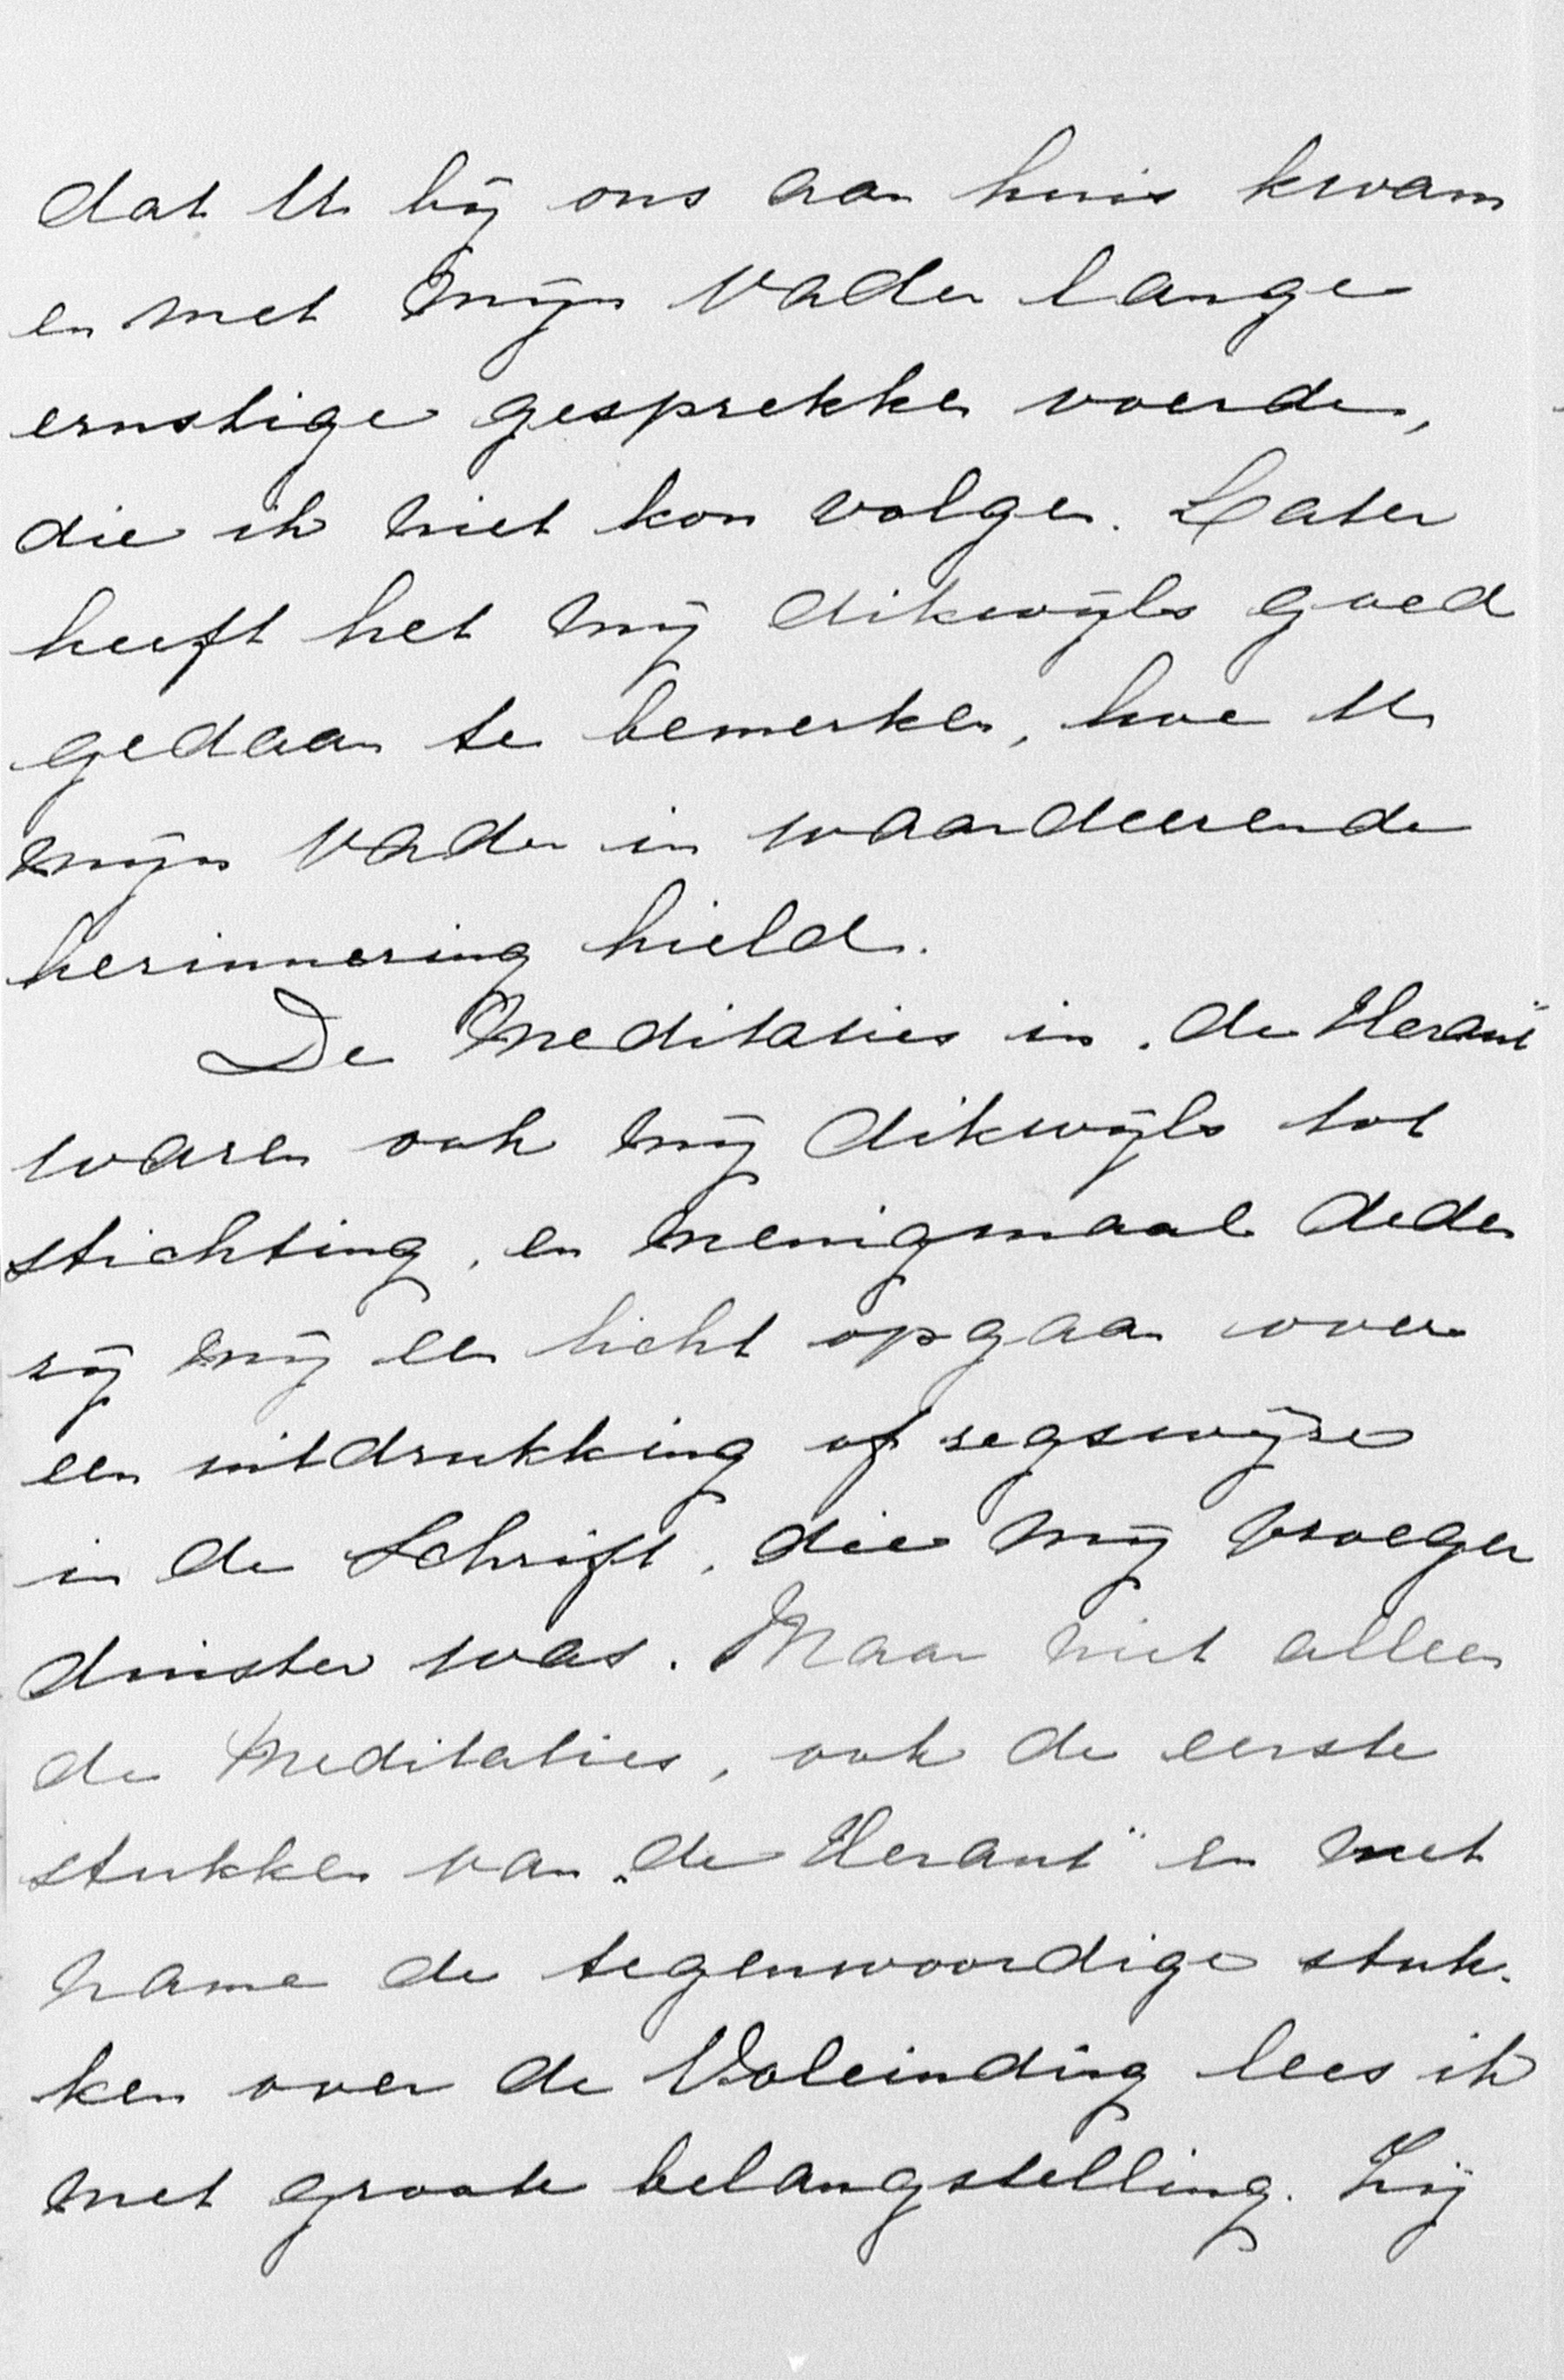 dat U bij ons aan huis kwam
en met mijn Vader lange
ernstige gesprekken voerde,
die ik niet kon volgen. Later
heeft het mij dikwijls goed
gedaan te bemerken, hoe U
mijn Vader in waardeerende
herinnering hield.
De Meditaties in „de Heraut"
waren ook mij dikwijls tot
stichting, en menigmaal deden
zij mij een licht opgaan over
een uitdrukking of zegswijze
in de Schrift, die mij vroeger
duister was. Maar niet alleen
de Meditaties, ook de eerste
stukken van „de Heraut" en met
name de tegenwoordige stuk-
ken over de Voleinding lees ik
met groote belangstelling. Zij